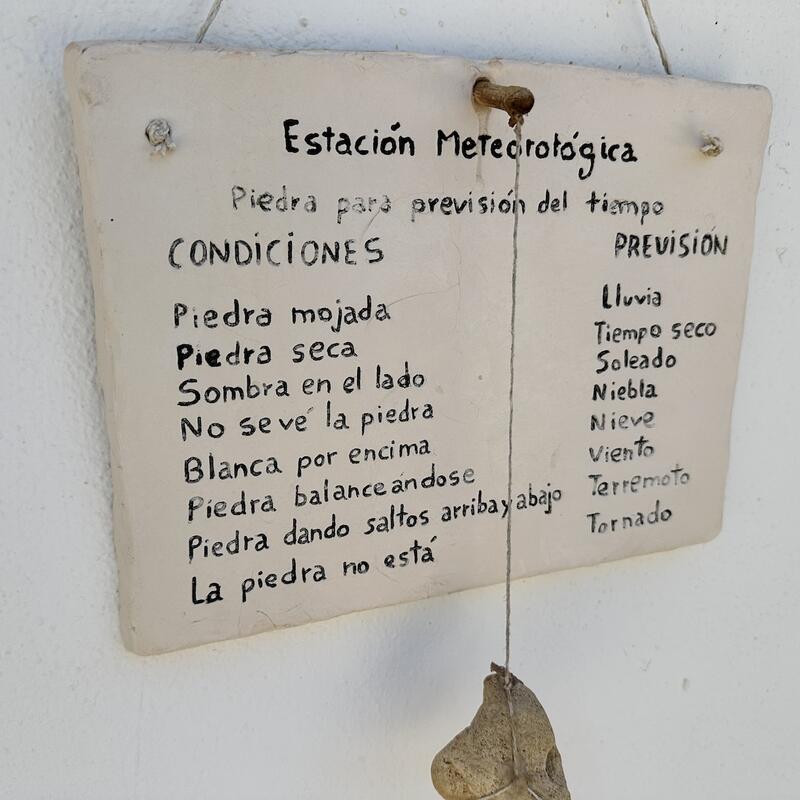 Estación Meteorológica
Piedra para previsión del tiempo
CONDICIONES PREVISIÓN
Piedra mojada Lluvia
Piedra seca Tiempo seco
Sombra en el lado Soleado
No se vé la piedra Niebla
Blanca por encima Nieve
Piedra balanceándose Viento
Piedra dando saltos arriba y abajo Terremoto
La piedra no está Tornado